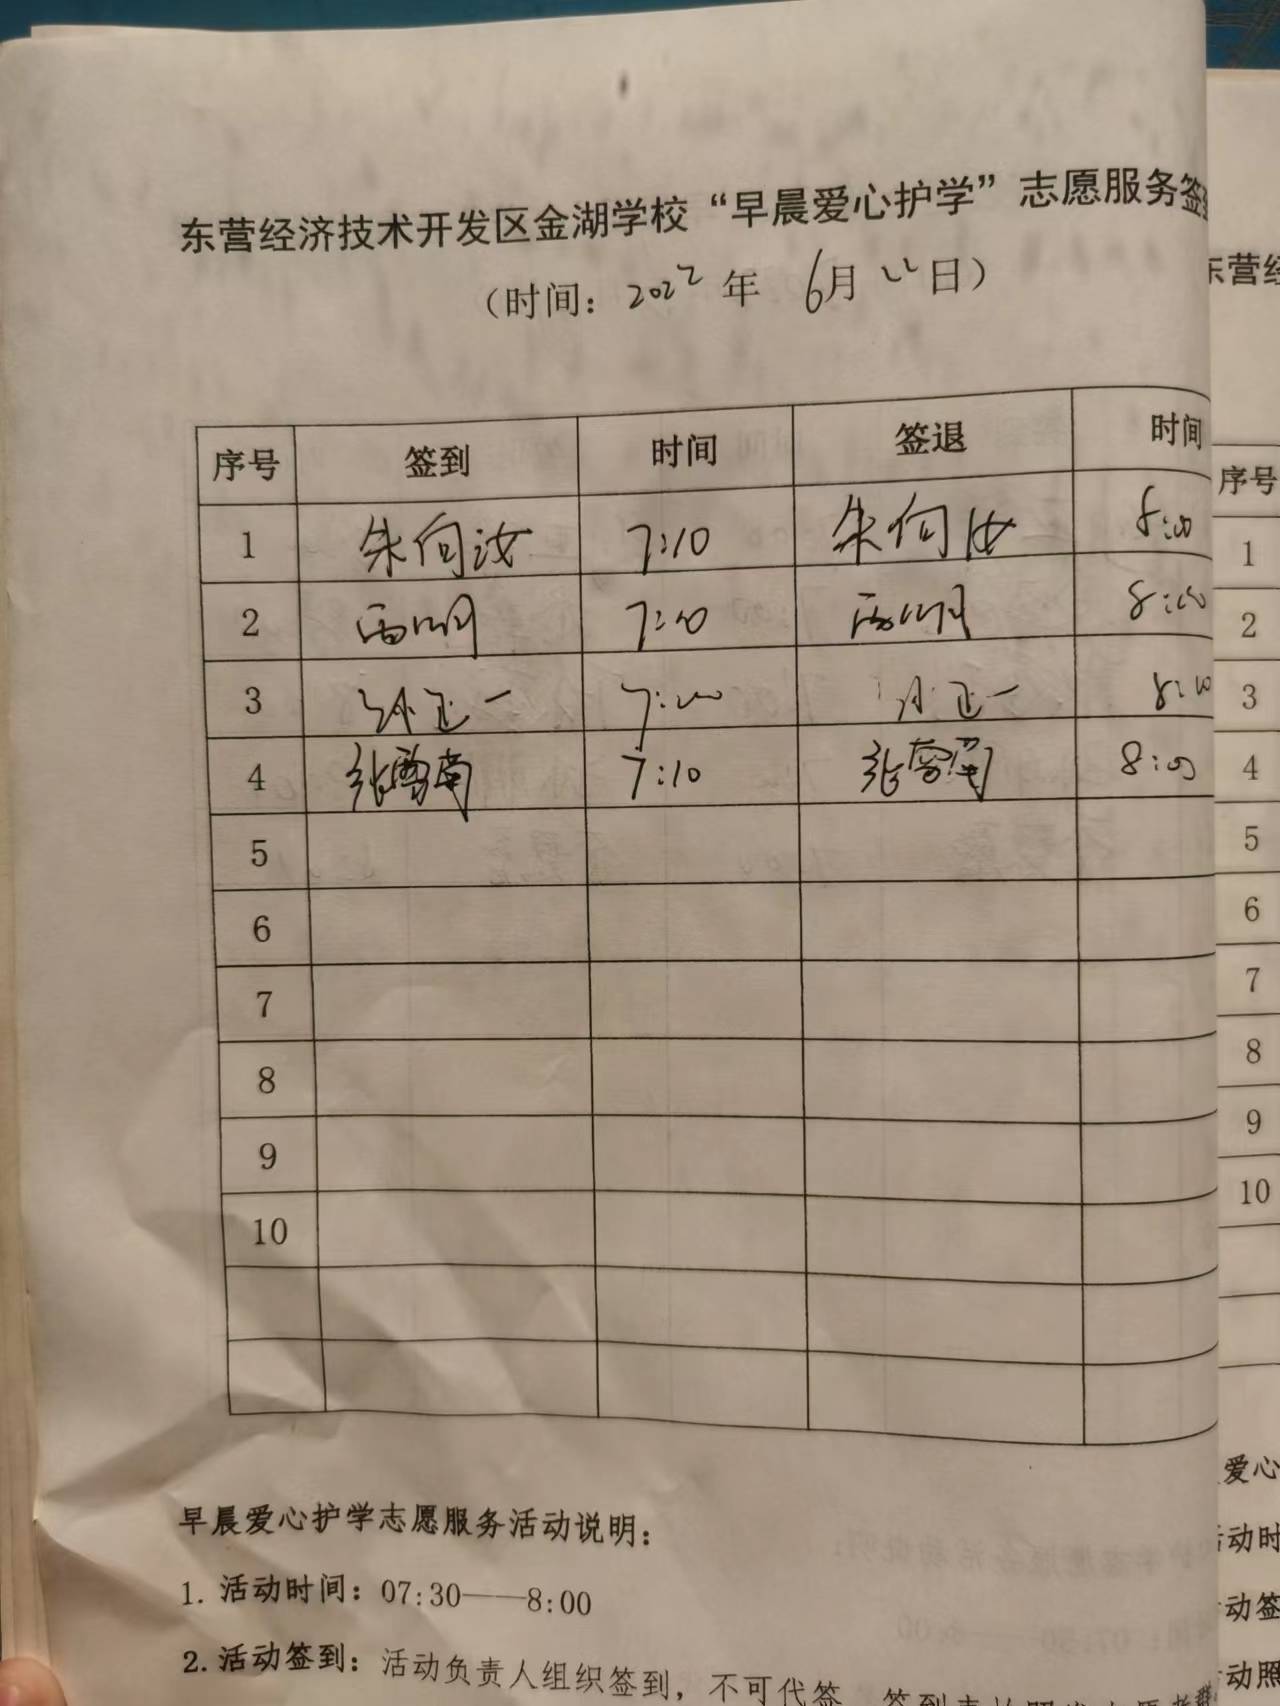 东营经济技术开发区金湖学校“早晨爱心护学”志愿服务签
（时间：2022年 6月22日）
序号 签到 时间 签退 时间
1 朱向汝 7:10 朱向汝 8:00
2 7:10 8:00
3 孙正一 7:00 孙正一 8:10
4 张雪南 7:10 张雪南 8:00
5
6
7
8
9
10
早晨爱心护学志愿服务活动说明：
1. 活动时间：07:30——8:00
2. 活动签到：活动负责人组织签到，不可代签
东营经
序号
1
2
3
4
5
6
7
8
9
10
爱心
活动时
动签
动照